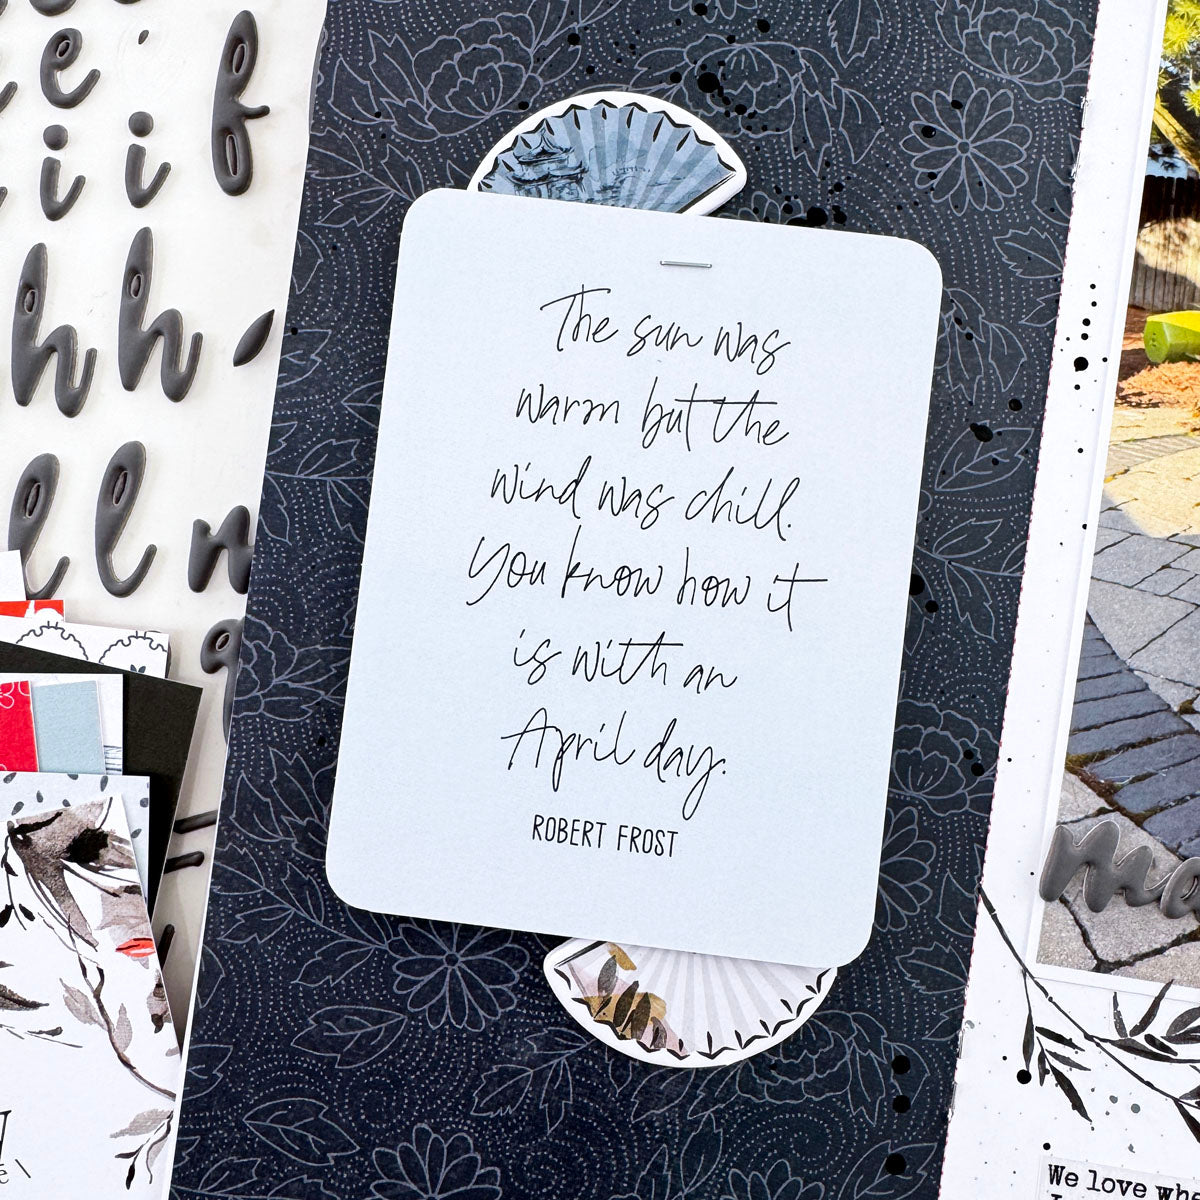 e f
i i
h h
l l n
The sun was
warm but the
wind was chill.
You know how it
is with an
April day.
ROBERT FROST
We love